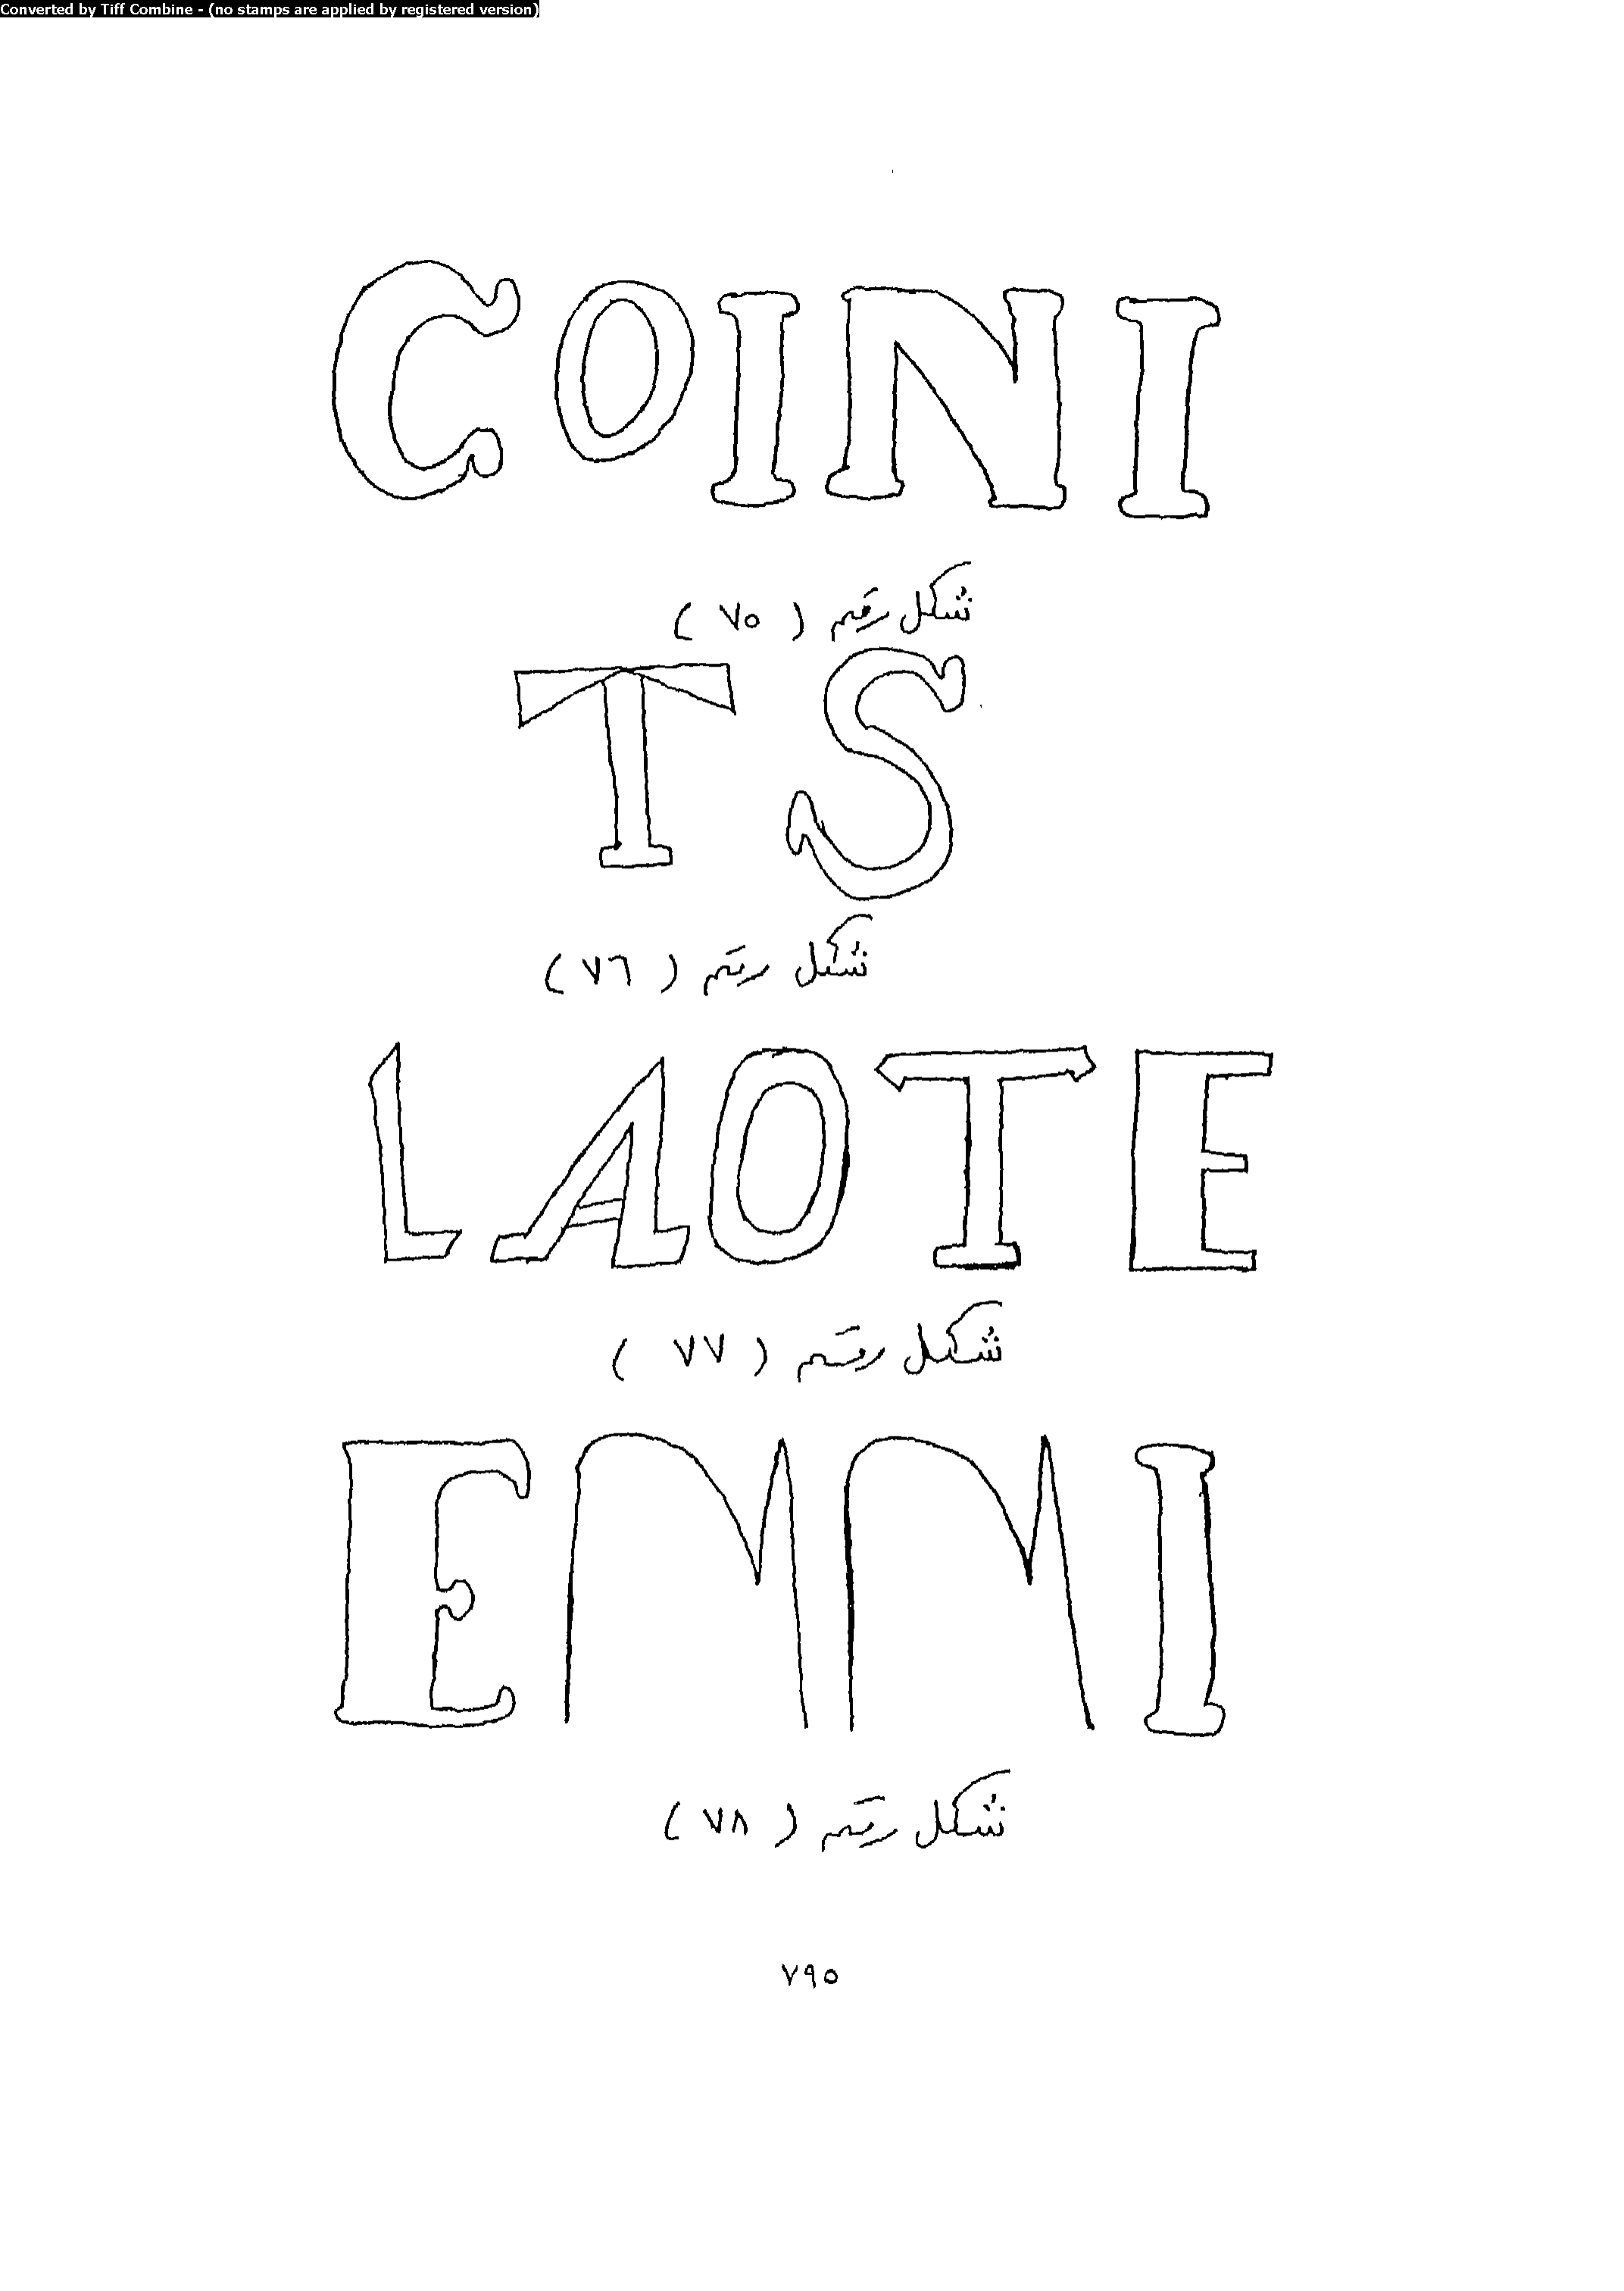 Converted by Tiff Combine - (no stamps are applied by registered version)
COINI
شكل رقم ( ٧٥ )
TS
شكل رقم ( ٧٦ )
LAOTE
شكل رقم ( ٧٧ )
EMMI
شكل رقم ( ٧٨ )
٧٩٥